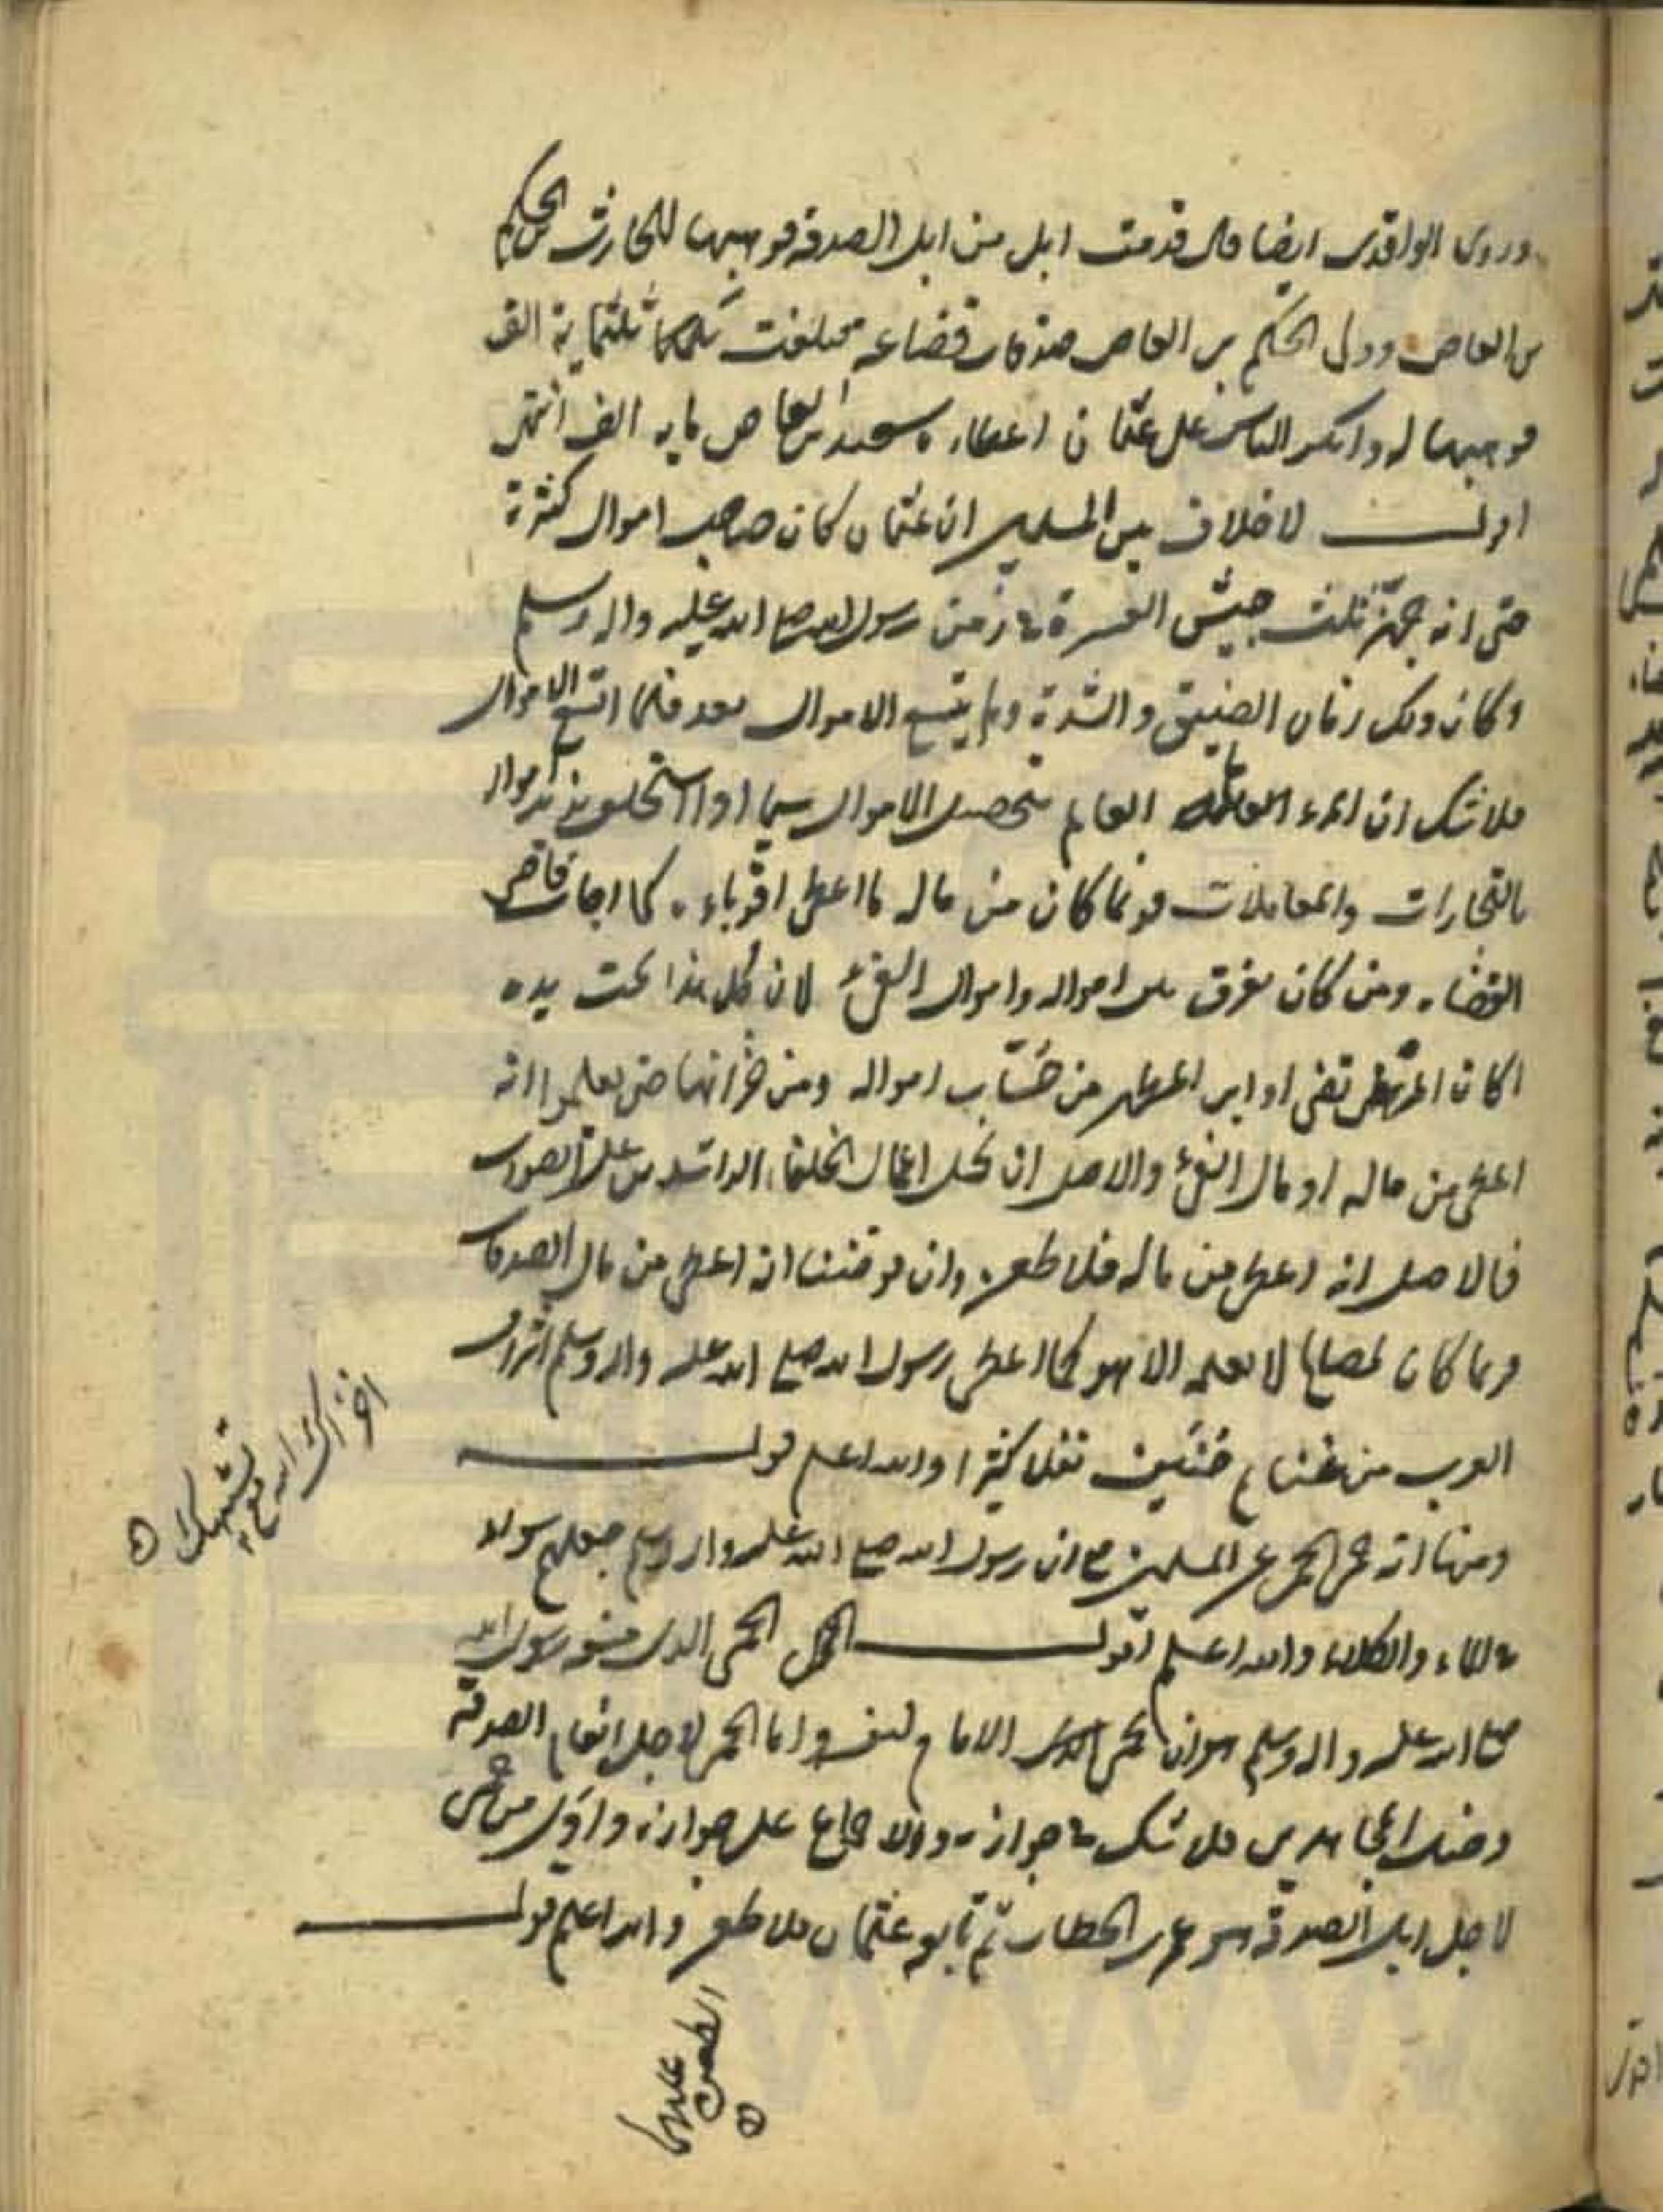 وروى الواقدى ايضا قال قدمت ابل من ابل الصدقة فوهبها للحارث بن الحكم
بن العاص وولى الحكم بن العاص صدقات قضاعة فبلغت ثلثماية الف
فوهبها له وانكر الناس على عثمان اعطاءه سعيد بن العاص ماية الف انتهى
اقول لا خلاف بين المسلمين ان عثمان كان صاحب اموال كثيرة
حتى انه جهز ثلث جيش العسرة فى زمن رسول الله صلى الله عليه واله وسلم
وكان ذلك زمان الضيق والشدة ولم يتسع الاموال بعد فلما اتسع الاموال
فلا شك ان العالم بتحصيل الاموال سيما اذا استخلف يزيد امواله
بالتجارات والمعاملات فربما كان من ماله ما اعطى اقرباءه كما اجاب قاضى
القضاة ومن كان يفرق بين امواله واموال الفئ لان كل هذا تحت يده
اكان المرتضى او ابن المطهر من حساب امواله ومن خزانها حتى يعلموا انه
اعطى من ماله او مال الفئ والاصل ان تحمل اعمال الخلفاء الراشدين على الصواب
فالاصل انه اعطى من ماله فلا طعن وان فرضنا انه اعطى من مال الصدقات
فربما كان لمصالح لا يعلمه الا هو كما اعطى رسول الله صلى الله عليه واله وسلم اشراف
العرب من غنايم حنين نفلا كثيرا والله اعلم قوله
ومنها انه حمى الحمى عن المسلمين مع ان رسول الله صلى الله عليه واله وسلم جعلهم سواء
فى الماء والكلاء والله اعلم اقول الحمى الذى منعه رسول الله
صلى الله عليه واله وسلم هو ان يحمى الامام لنفسه واما الحمى لاجل انعام الصدقة
وخيل المجاهدين فلا شك فى جوازه والاجماع على جوازه واول من حمى
لاجل ابل الصدقة هو عمر بن الخطاب ثم تابعه عثمان فلا طعن والله اعلم قوله